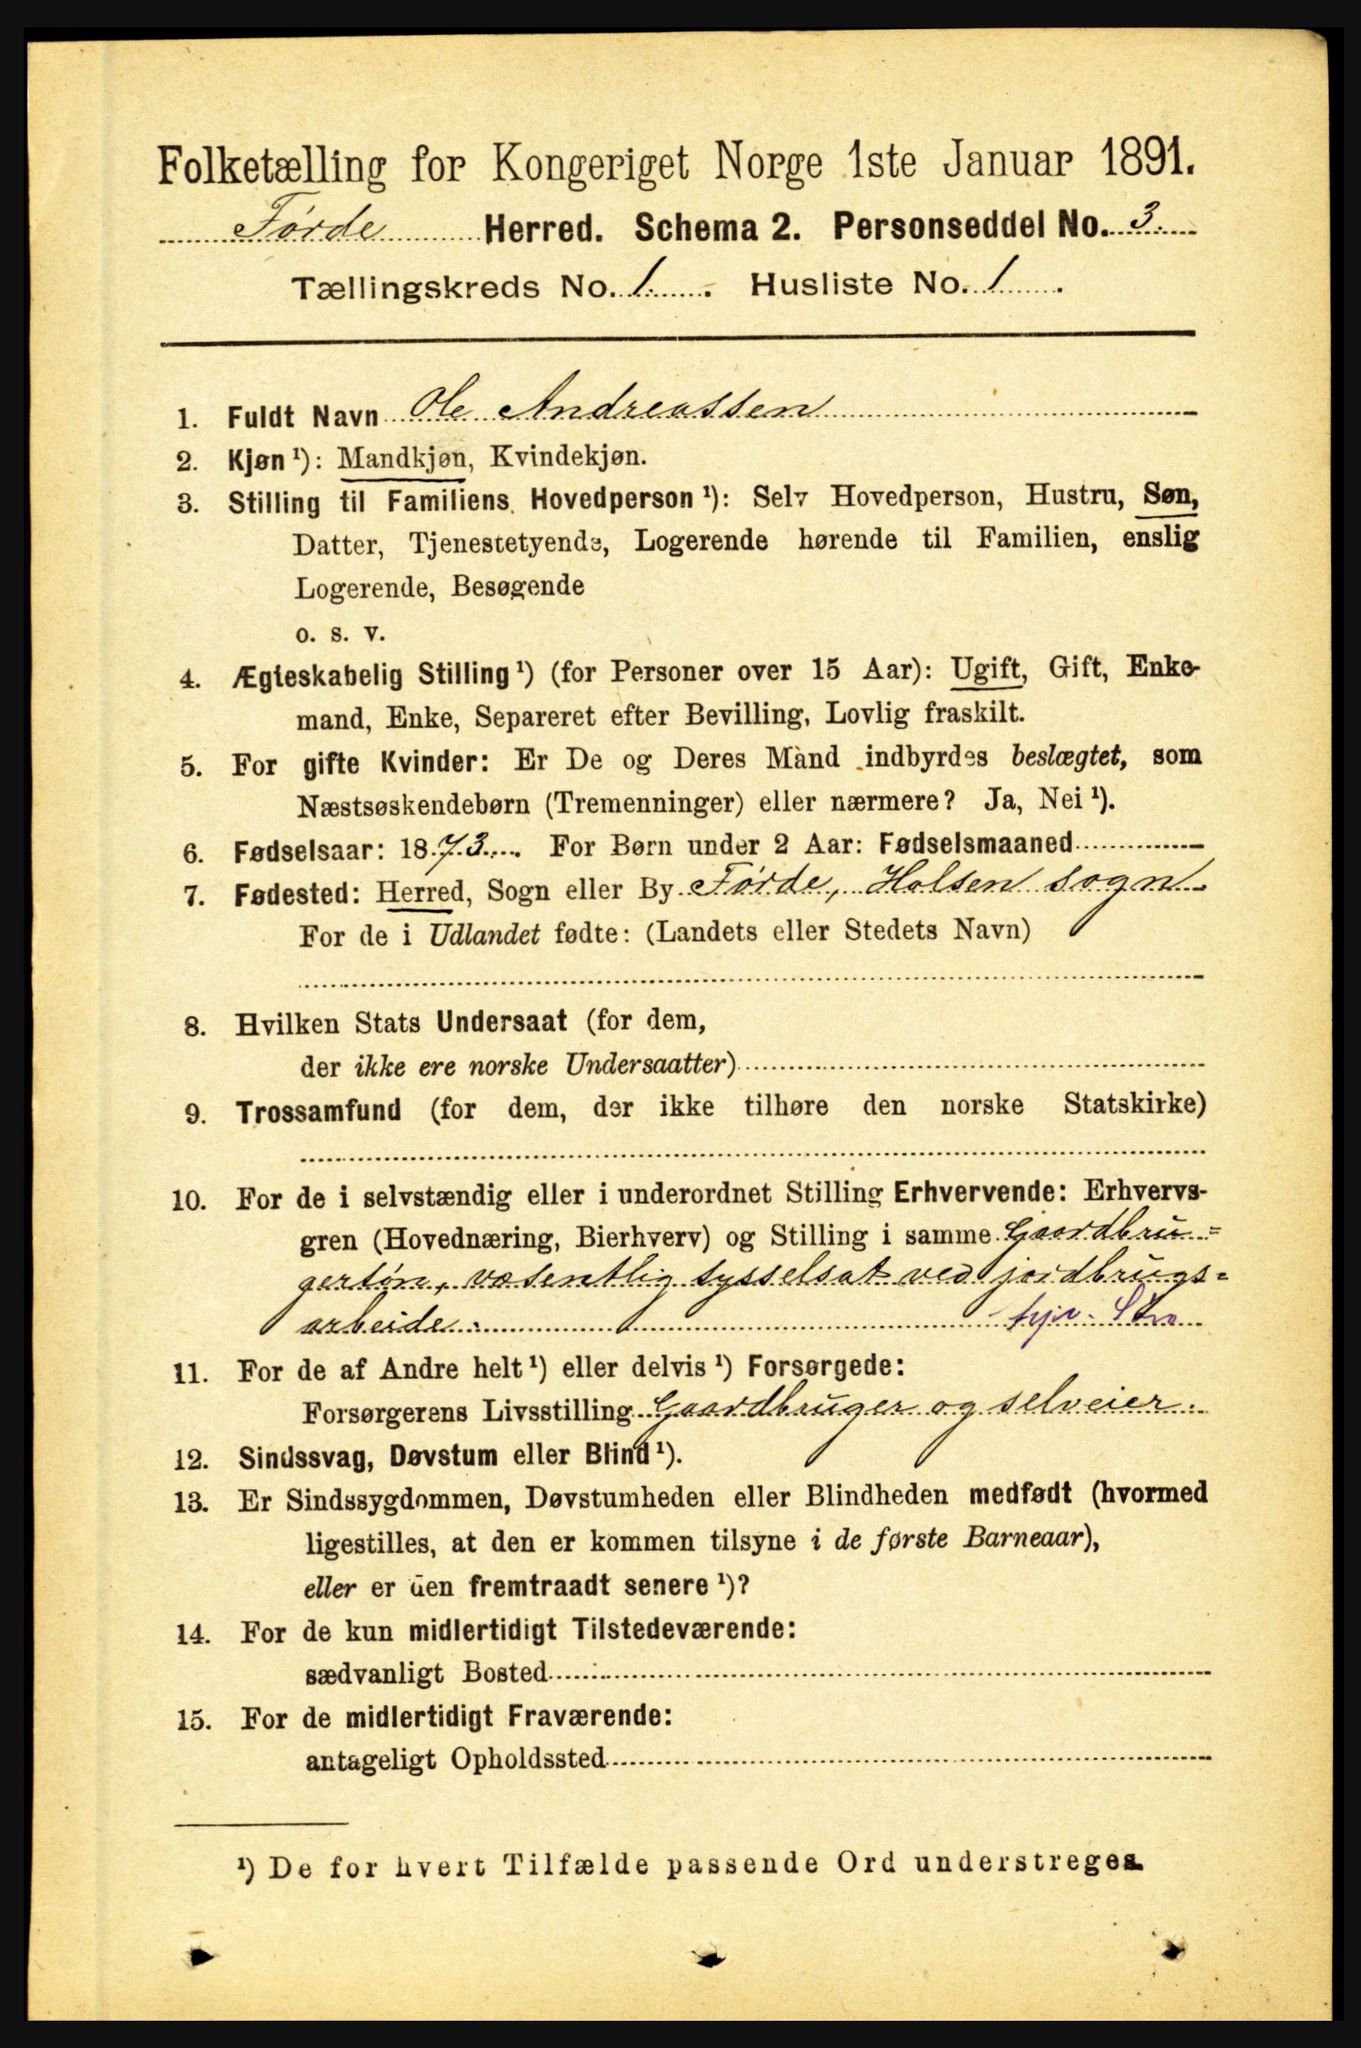 Folketælling for Kongeriget Norge 1ste Januar 1891.
Førde Herred. Schema 2. Personseddel No. 3.
Tællingskreds No. 1. Husliste No. 1
1. Fuldt Navn Ole Andreassen
2. Kjøn¹): Mandkjøn, Kvindekjøn.
3. Stilling til Familiens Hovedperson¹): Selv Hovedperson, Hustru, Søn,
Datter, Tjenestetyende, Logerende hørende til Familien, enslig
Logerende, Besøgende
o. s. v.
4. Ægteskabelig Stilling¹) (for Personer over 15 Aar): Ugift, Gift, Enke-
mand, Enke, Separeret efter Bevilling, Lovlig fraskilt.
5. For gifte Kvinder: Er De og Deres Mand indbyrdes beslægtet, som
Næstsøskendebørn (Tremenninger) eller nærmere? Ja, Nei¹).
6. Fødselsaar: 1873. For Børn under 2 Aar: Fødselsmaaned
7. Fødested: Herred, Sogn eller By Førde, Holsen sogn
For de i Udlandet fødte: (Landets eller Stedets Navn)
8. Hvilken Stats Undersaat (for dem,
der ikke ere norske Undersaatter)
9. Trossamfund (for dem, der ikke tilhøre den norske Statskirke)
10. For de i selvstændig eller i underordnet Stilling Erhvervende: Erhvervs-
gren (Hovednæring, Bierhverv) og Stilling i samme Gaardbru-
gersøn, væsentlig sysselsat ved jordbrugs-
arbeide.
11. For de af Andre helt¹) eller delvis¹) Forsørgede:
Forsørgerens Livsstilling Gaardbruger og selveier.
12. Sindssvag, Døvstum eller Blind¹).
13. Er Sindssygdommen, Døvstumheden eller Blindheden medfødt (hvormed
ligestilles, at den er kommen tilsyne i de første Barneaar),
eller er den fremtraadt senere¹)?
14. For de kun midlertidigt Tilstedeværende:
sædvanligt Bosted
15. For de midlertidigt Fraværende:
antageligt Opholdssted
¹) De for hvert Tilfælde passende Ord understreges.